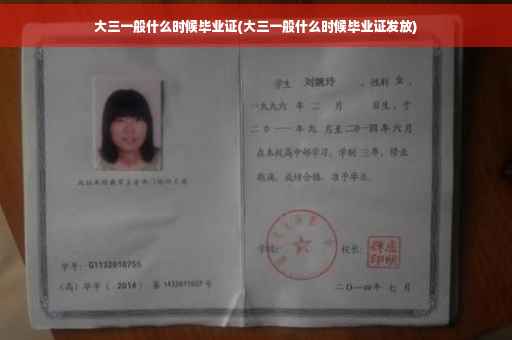 大三一般什么时候毕业证(大三一般什么时候毕业证发放)
学生 刘婉玲 ，性别 女 ，
一九九六 年 二 月 日生，于
二〇一一 年 九 月至 二〇一四 年 六 月
在本校高中部学习，学制 三 年，修业
期满，成绩合格，准予毕业。
学校： 校长：
学号： G1132010755
(高) 毕字 ( 2014 ) 第 1432011007 号
二〇一四年 七 月